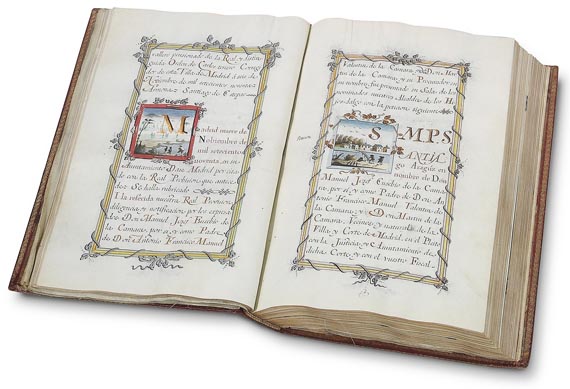 vallero pensionado de la Real y distin
guida Orden de Carlos tercero Corre
dor de esta Villa de Madrid à seis de
Noviembre de mil setecientos noventa
Armona Santiago de Estepar
Madrid nueve de
Noviembre de
mil setecientos
noventa, en su
Ayuntamiento D.n Madrid por ante
con la Real Provision que antece
de Se halla rubricado
I la referida nuestra Real Provision
diligencia y notificacion, por los expresa
dos Don Manuel Josef Eusebio de la
Camara por si y como Padre
de Don Antonio Francisco Manuel
Valentin de la Camara, y Don Mar
tin de la Camara, y su Procurador en
su nombre, fue presentada en Sala de los
nominados nuestros Alcaldes de los Hi
jos dalgo con la peticion siguiente
Peticion
S M.P.S
ANTIA
go Aragón en
nombre de Don
Manuel Josef Eusebio de la Cama
ra, por si, y como Padre de Don An
tonio Francisco Manuel Valentin de la
Camara y Don Martin de la
Camara Vecinos y naturales de la
Villa y Corte de Madrid, en el Pleito
con la Justicia y Ayuntamiento de
dicha Corte y con el vuestro Fiscal